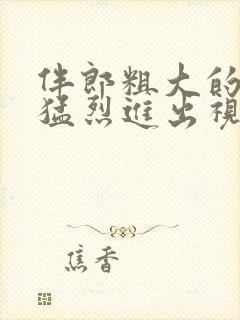 伴郎粗大的
猛烈進出視
焦香